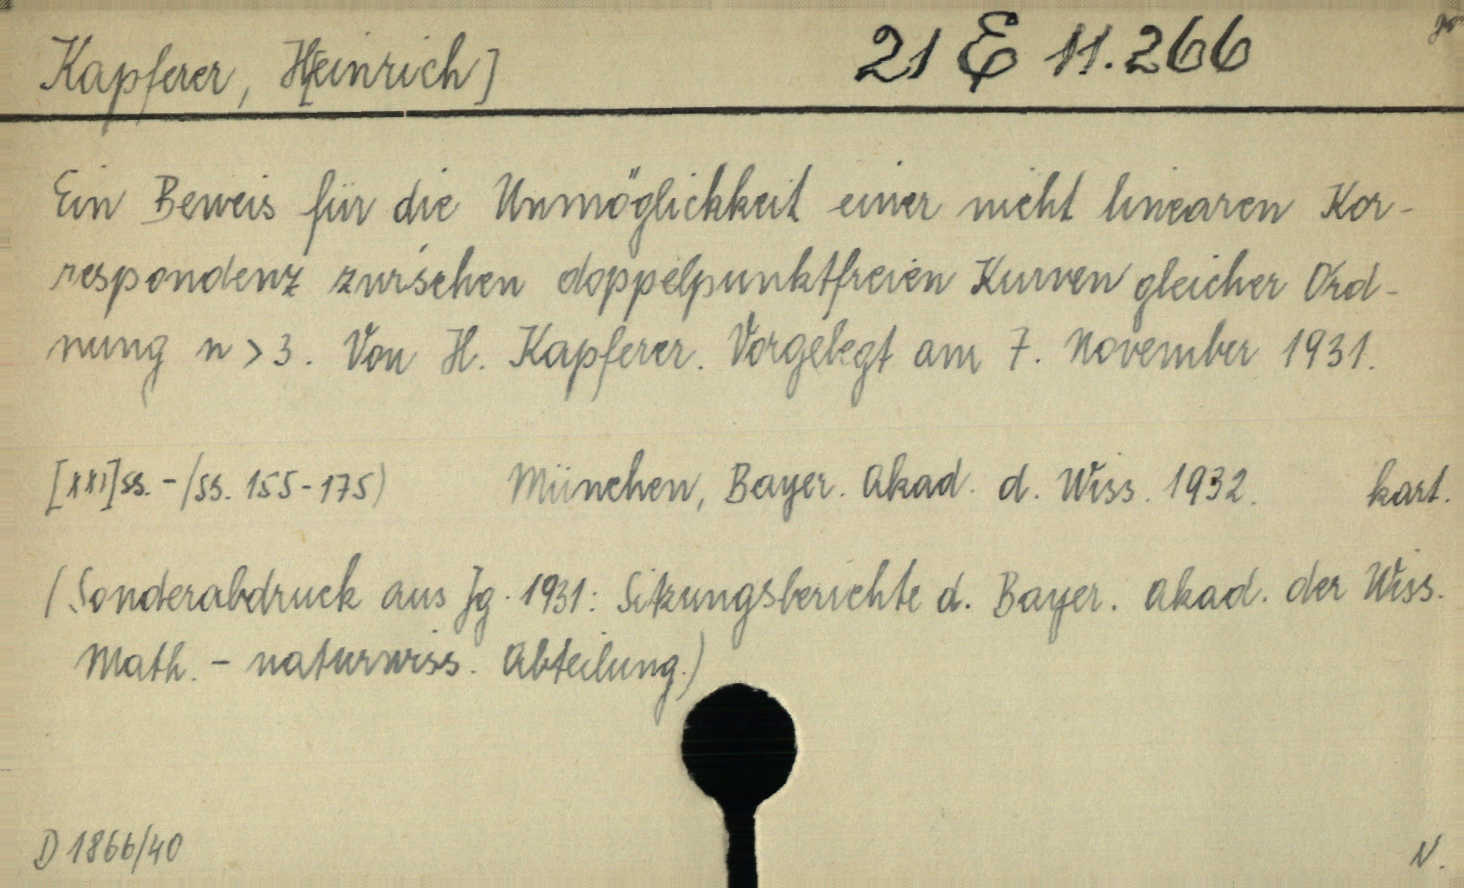 Kapferer, H[einrich] 21 E 11.266
Ein Beweis für die Unmöglichkeit einer nicht linearen Kor-
respondenz zwischen doppelpunktfreien Kurven gleicher Ord-
nung n > 3. Von H. Kapferer. Vorgelegt am 7. November 1931.
[XXI]SS. - (SS. 155-175) München, Bayer. Akad. d. Wiss. 1932. kart.
(Sonderabdruck aus Jg. 1931: Sitzungsberichte d. Bayer. Akad. der Wiss.
Math. - naturwiss. Abteilung.)
D 1866/40 N.